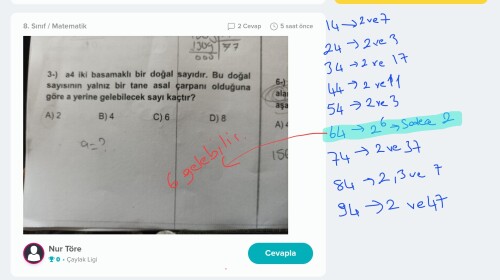 8. Sınıf / Matematik
2 Cevap
5 saat önce
1309
77
000
3-) a4 iki basamaklı bir doğal sayıdır. Bu doğal
sayısının yalnız bir tane asal çarpanı olduğuna
göre a yerine gelebilecek sayı kaçtır?
A) 2 B) 4 C) 6 D) 8
a=?
6 gelebilir.
6-)
A) 4
Nur Töre
0 • Çaylak Ligi
Cevapla
14 → 2 ve 7
24 → 2 ve 3
34 → 2 ve 17
44 → 2 ve 11
54 → 2 ve 3
64 → 2⁶ → Sadece 2
74 → 2 ve 37
84 → 2, 3 ve 7
94 → 2 ve 47